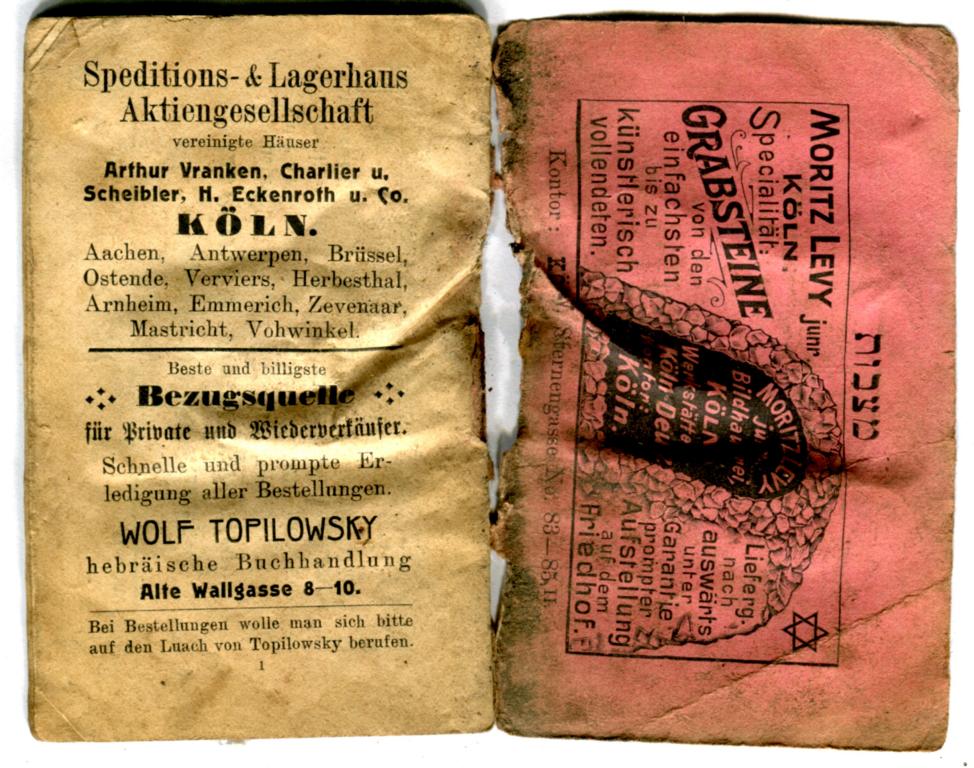 Speditions- & Lagerhaus
Aktiengesellschaft
vereinigte Häuser
Arthur Vranken, Charlier u.
Scheibler, H. Eckenroth u. Co.
KÖLN.
Aachen, Antwerpen, Brüssel,
Ostende, Verviers, Herbesthal,
Arnheim, Emmerich, Zevenaar,
Mastricht, Vohwinkel.
Beste und billigste
Bezugsquelle
für Private und Wiederverkäufer.
Schnelle und prompte Er-
ledigung aller Bestellungen.
WOLF TOPILOWSKY
hebräische Buchhandlung
Alte Wallgasse 8—10.
Bei Bestellungen wolle man sich bitte
auf den Luach von Topilowsky berufen.
1
מצבות
MORITZ LEVY junr.
KÖLN.
Specialität:
GRABSTEINE
von den
einfachsten
bis zu
künstlerisch
vollendeten.
MORITZ LEVY
jun.
KÖLN
Werkstätte
Köln-Deutz
Köln.
Lieferg.
nach
auswärts
unter
Garantie
prompter
Aufstellung
auf dem
Friedhof.
Kontor: Sternengasse No. 83—85 II.